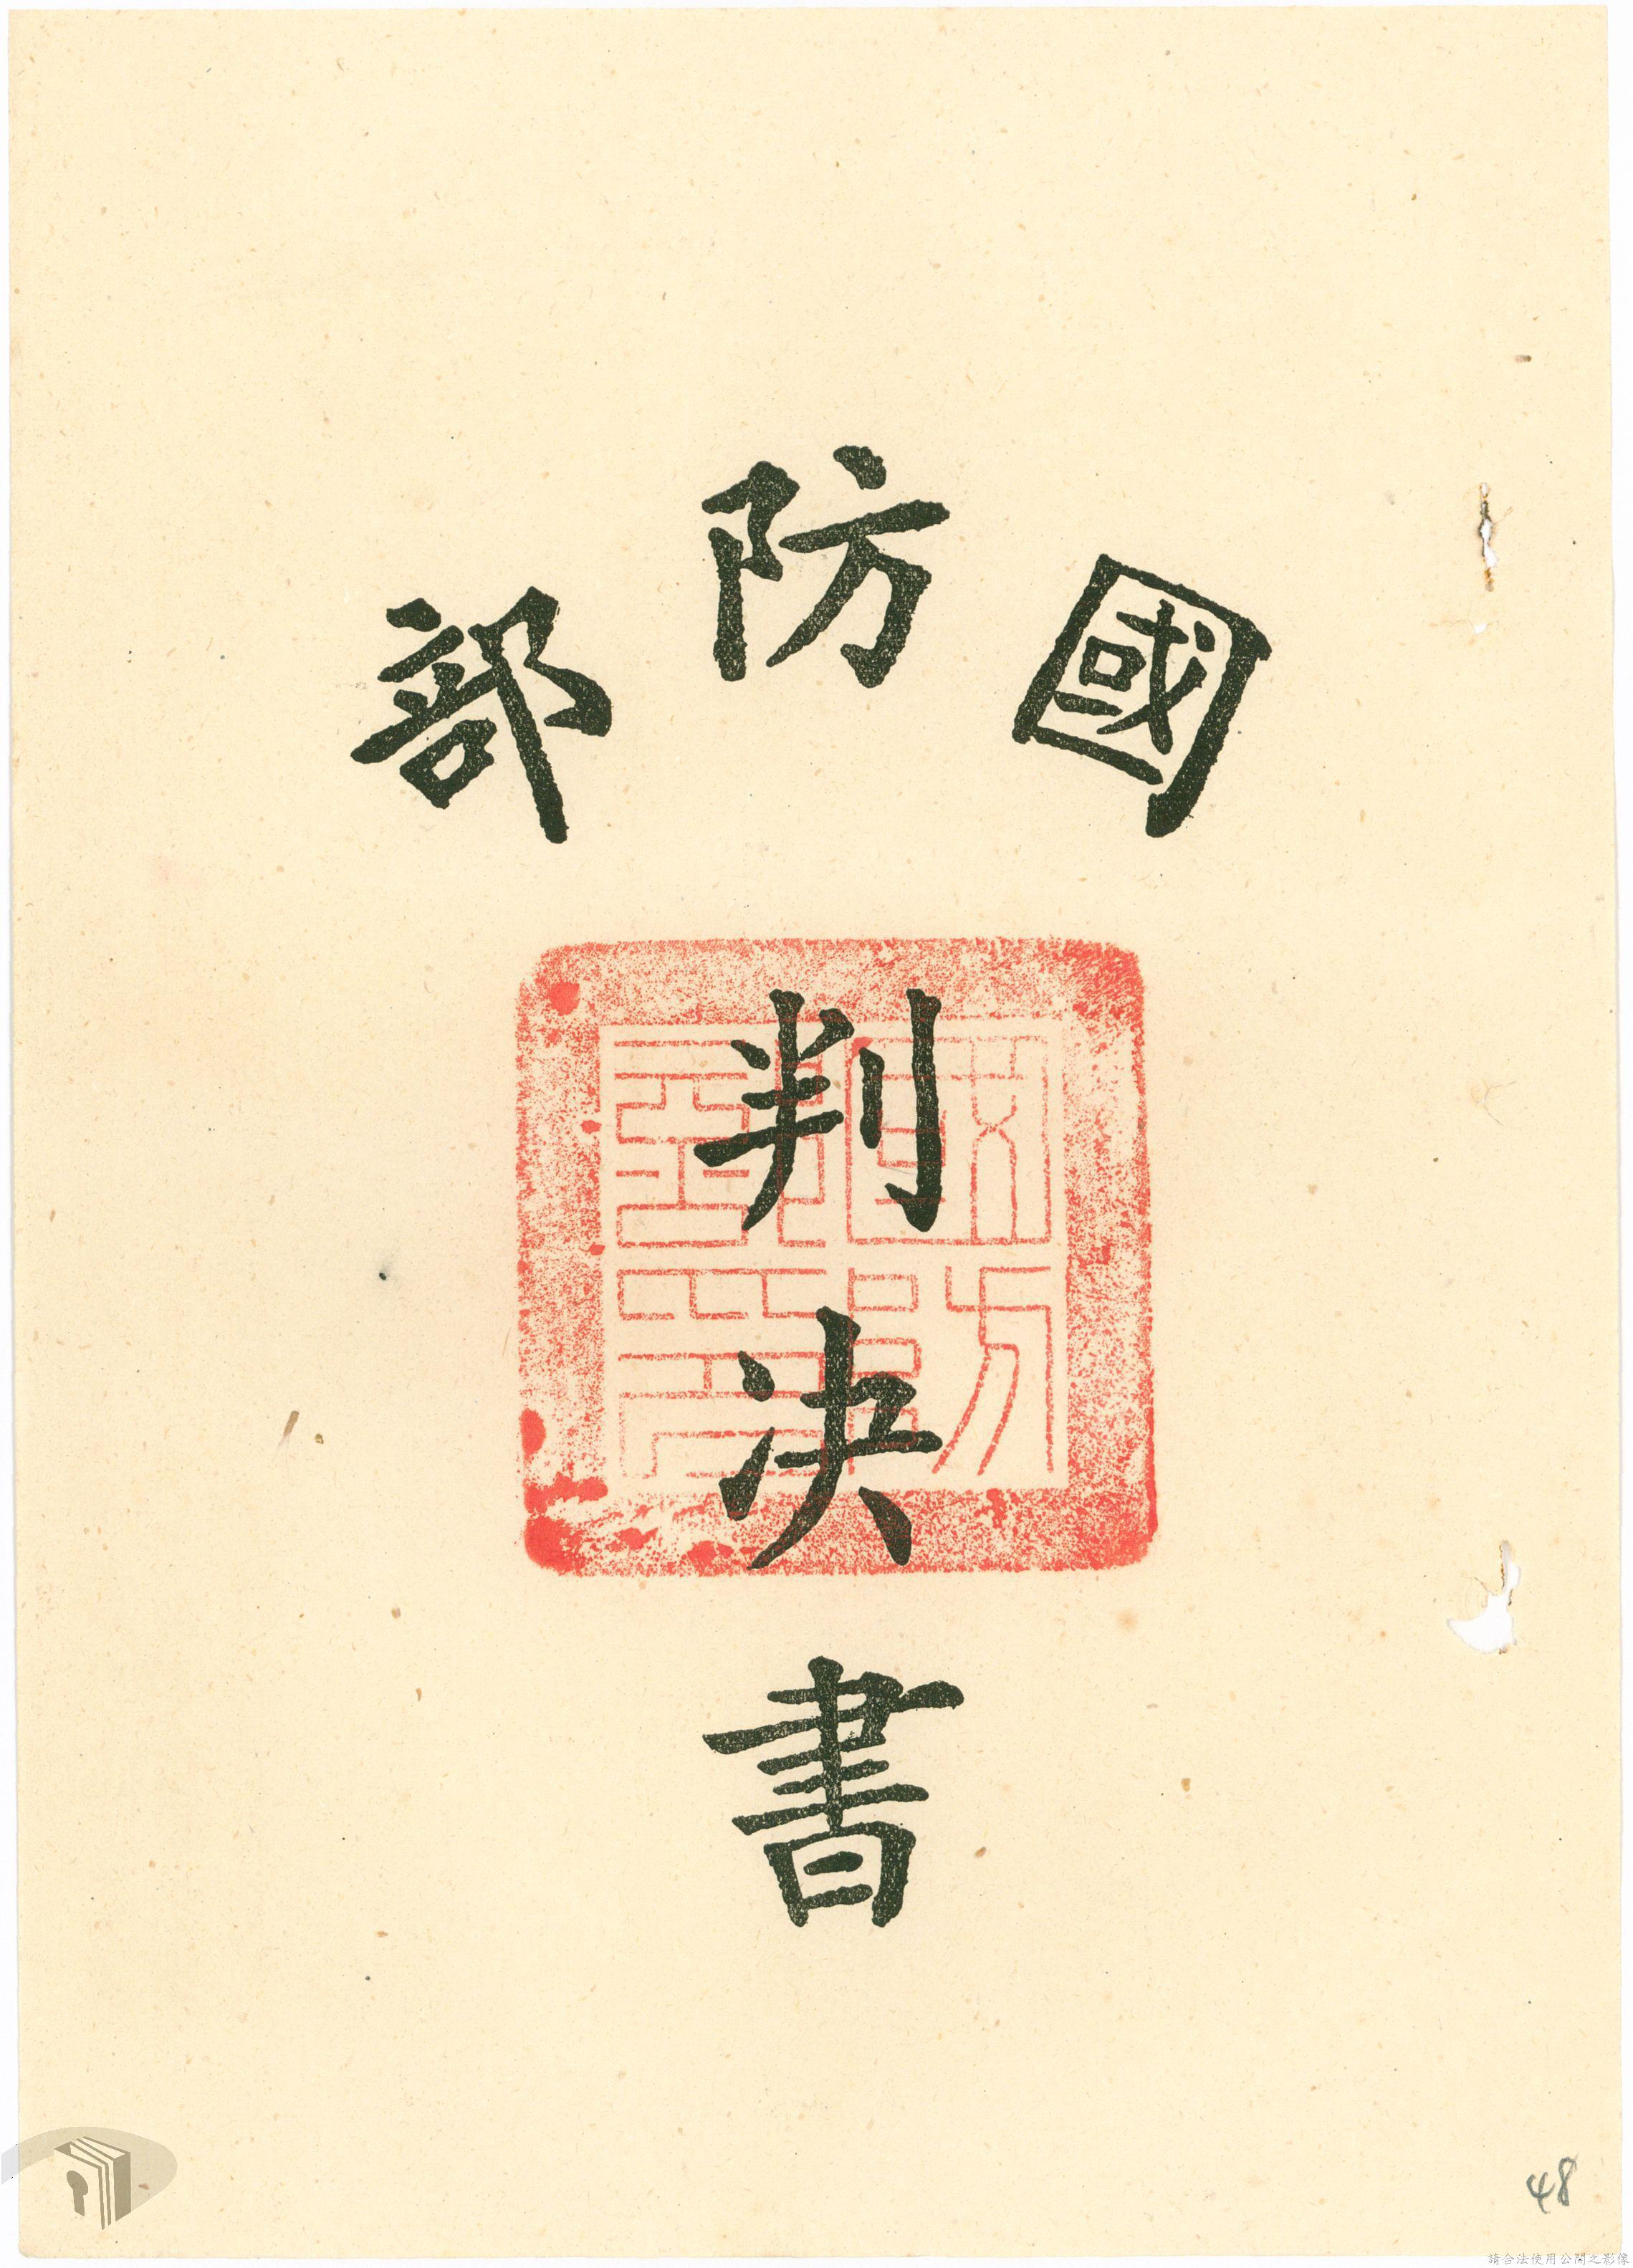 國防部
判決書
48
請合法使用公開之影像